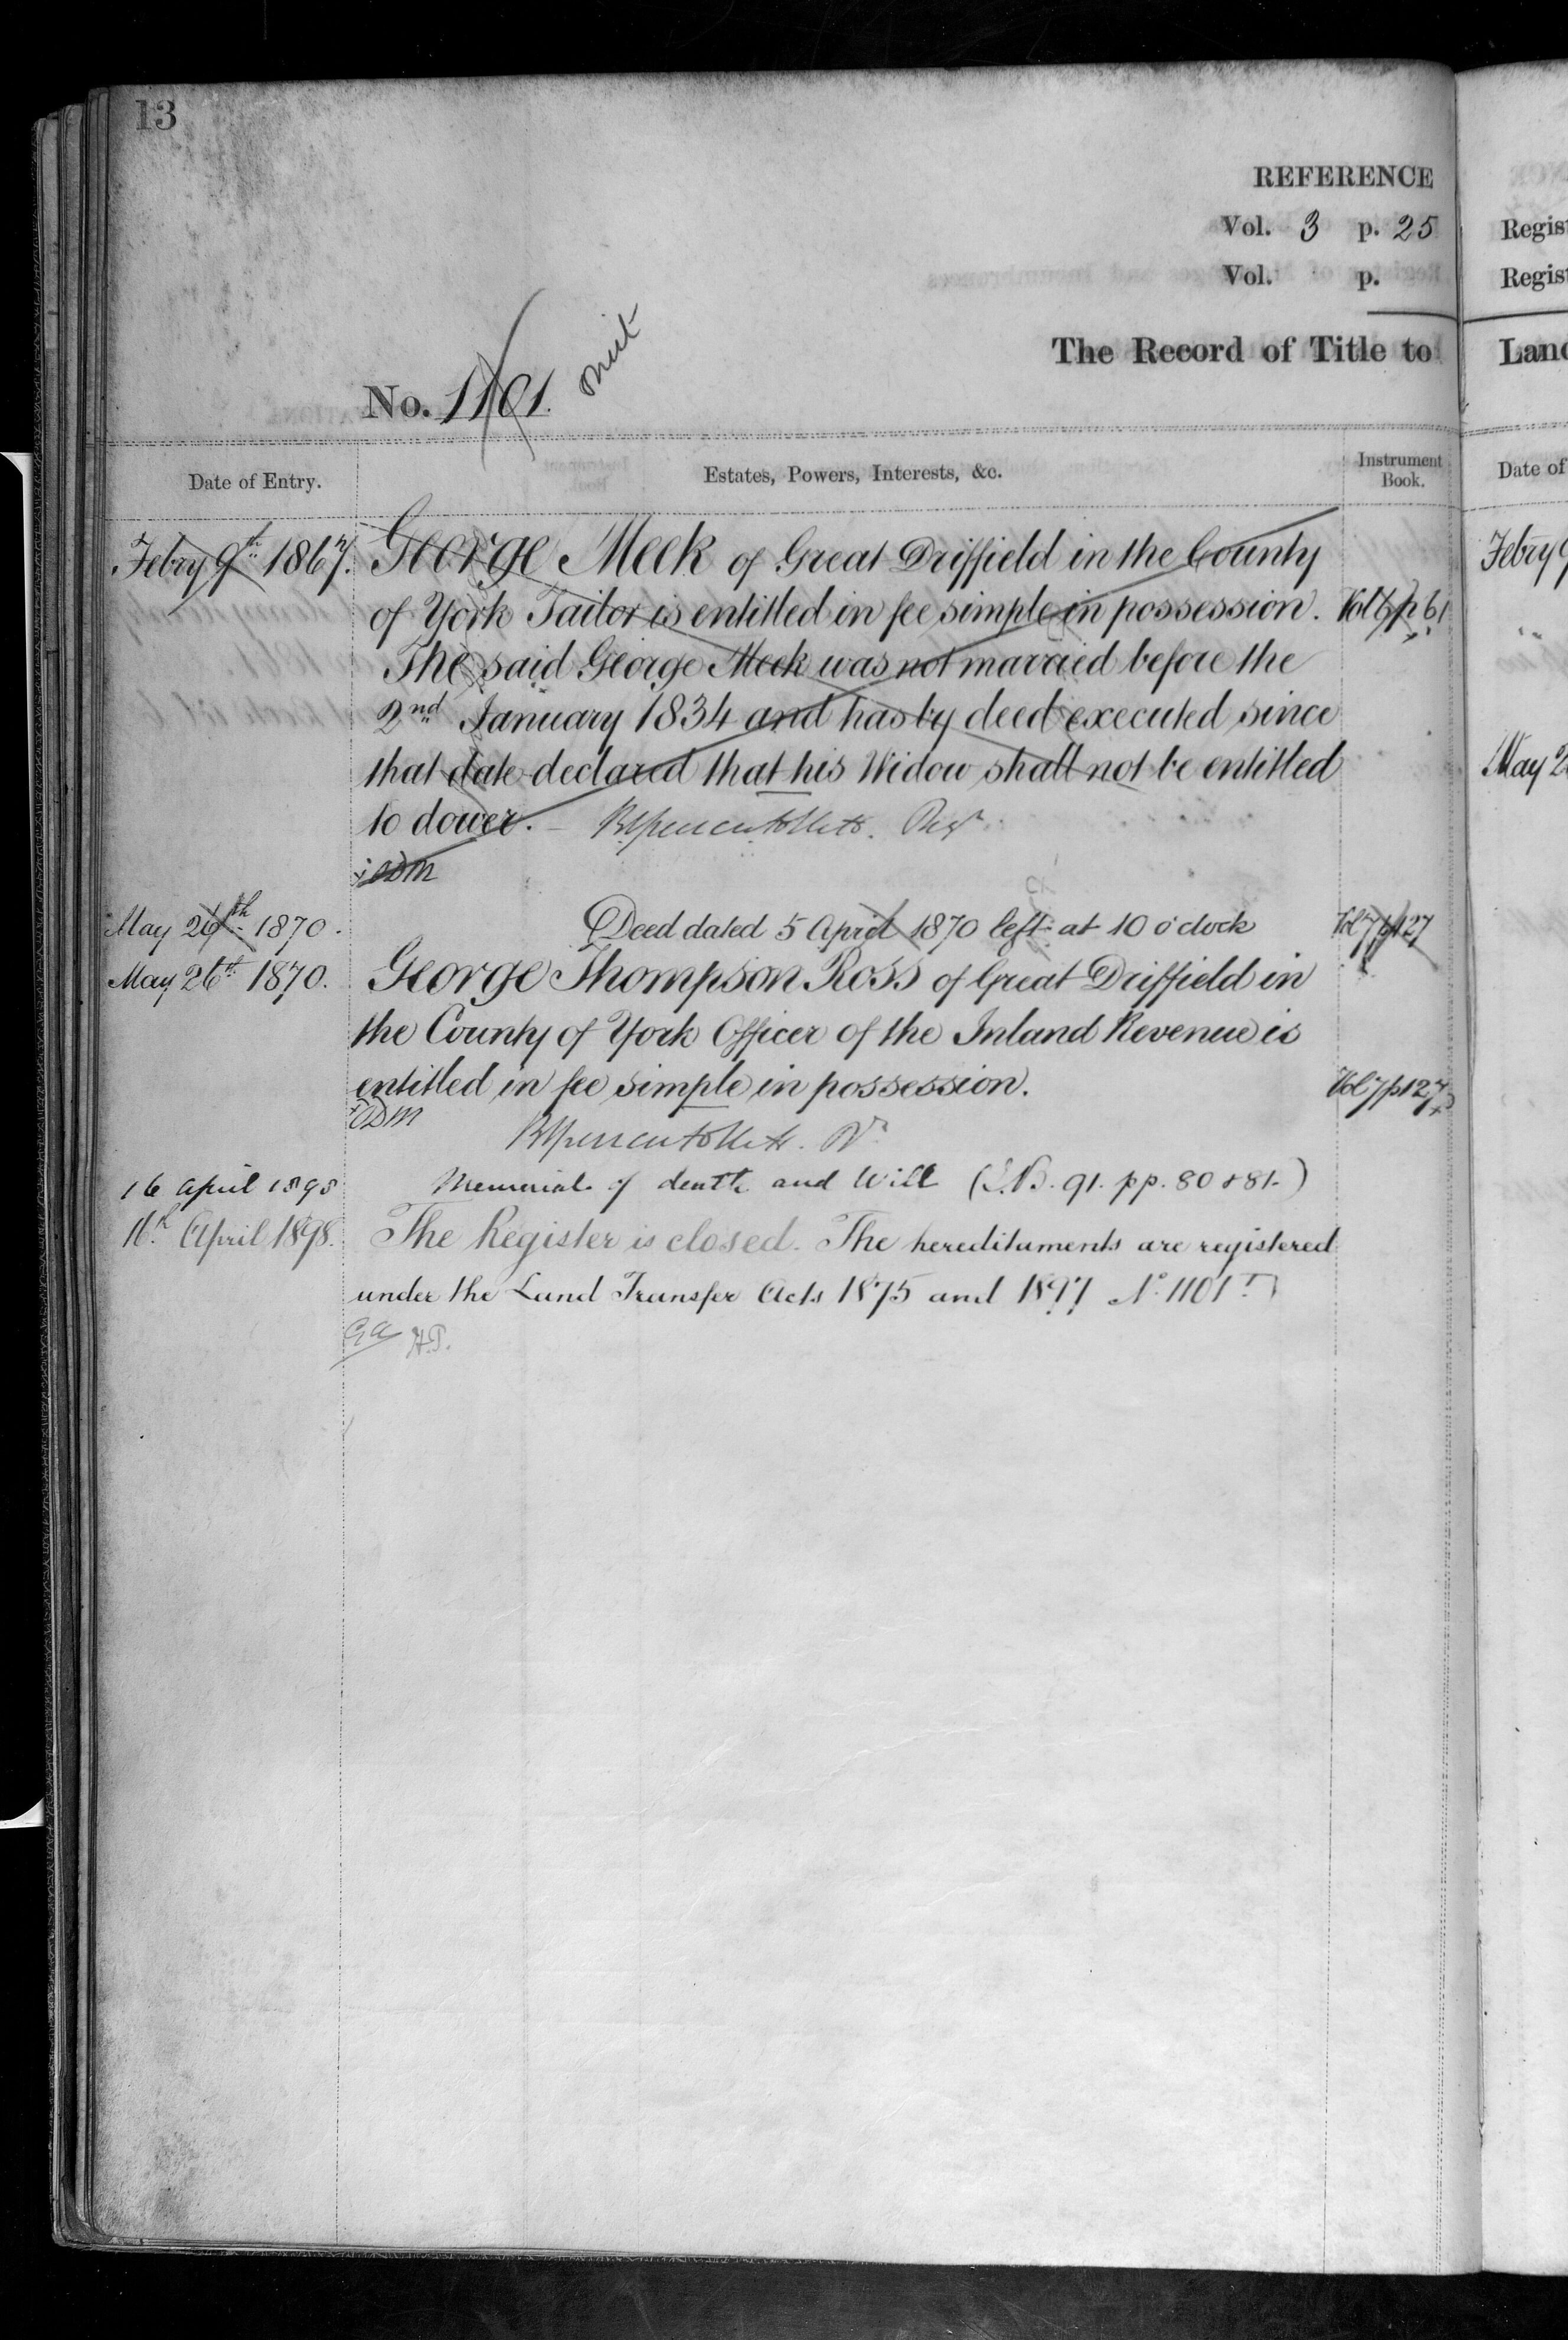 13
REFERENCE
Vol. 3 p. 25
Vol. p.
The Record of Title to
No. 1101. omit
Date of Entry. Estates, Powers, Interests, &c. Instrument Book.
Febry 9th 1867. George Meek of Great Driffield in the County
of York Tailor is entitled in fee simple in possession. Vol 6 p 61
The said George Meek was not married before the
2nd January 1834 and has by deed executed since
that date declared that his Widow shall not be entitled
to dower. Regr.
ODM
May 26th 1870. Deed dated 5 April 1870 left at 10 o'clock Vol 7 p 127
May 26th 1870. George Thompson Ross of Great Driffield in
the County of York Officer of the Inland Revenue is
entitled in fee simple in possession. Vol 7 p 127
ODM
16 April 1898 Memorial of death and Will (I.B. 91. pp. 80 & 81.)
16th April 1898. The Register is closed. The hereditaments are registered
under the Land Transfer Acts 1875 and 1897 No. 1101
GA H.P.
Regist
Regist
Land
Date of
Febry 9
May 2